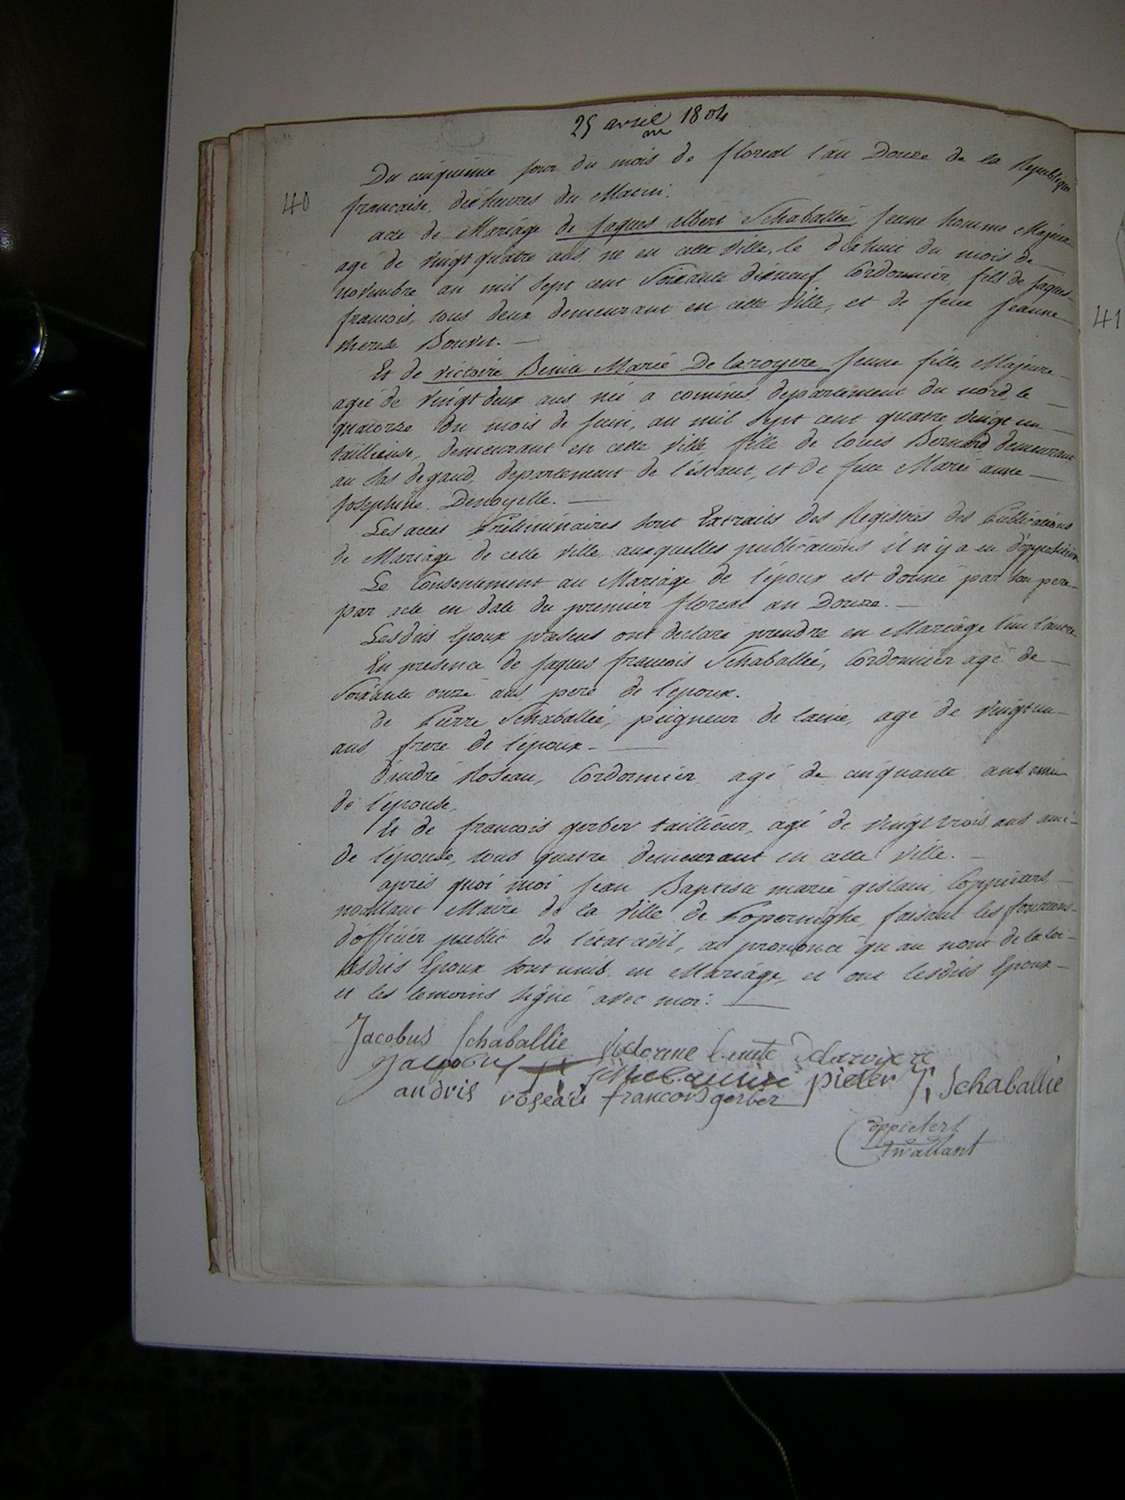 25 avril 1804
40
Du cinquieme jour du mois de floreal l'an Douze de la Republique
francaise, dix heures du Matin.
acte de Mariage de Jaques albert Schaballié, Jeune homme Majeur
agé de vingt quatre ans, né en cette ville, le dixhuit du mois de
novembre an mil sept cent Soixante dixneuf Cordonnier, fils de Jaques
francois, tous deux demeurant en cette ville, et de feue Jeanne
therese
Et de victoire Benite Marie De laroyere Jeune fille, Majeure
agée de vingt deux ans née a comines departement du nord, le
quatorze du mois de Juin, an mil sept cent quatre vingt un
tailleuse, demeurant en cette ville, fille de Louis Bernard demeurant
au Sas de gand, departement de l'escaut, et de feue Marie anne
Josephine Denoyelle.
Les actes Préliminaires sont Extraits des Registres des Publications
de Mariage de cette ville auxquelles publications il n'y a eu d'opposition
Le Consentement au Mariage de l'époux est donné par son pere
par acte en date du premier floreal an Douze.
Lesdits Epoux presens ont declaré prendre en Mariage l'un l'autre
En presence de Jaques francois Schaballié, Cordonnier agé de
Soixante onze ans pere de l'epoux.
de Pierre Schaballié, peigneur de laine, agé de vingt un
ans frere de l'époux.
d'andré Roseau, Cordonnier agé de cinquante ans ami
de l'épouse.
Et de francois gerber tailleur, agé de vingt trois ans ami
de l'épouse, tous quatre demeurant en cette ville.
après quoi moi Jean Baptiste marie gislain Coppieters
Maire de la ville de Poperinghe, faisant les fonctions
d'officier public de l'etat civil, ai prononcé qu'au nom de la loi
lesdits Epoux sont unis en Mariage, et ont lesdits Epoux
et les temoins signé avec moi.
Jacobus Schaballie victorine benite Delaroyere
pieter J: Schaballie
andris roseau francois gerber
Coppieters